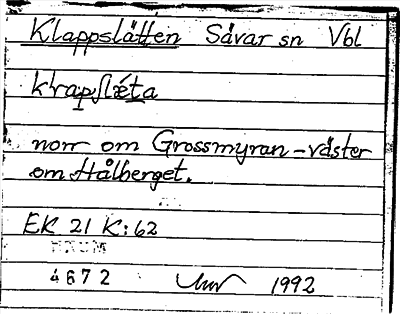 Klappslåtten Sävar sn Vbl
norr om Grossmyran - väster
om Hålberget.
EK 21 K:62
4672 1992